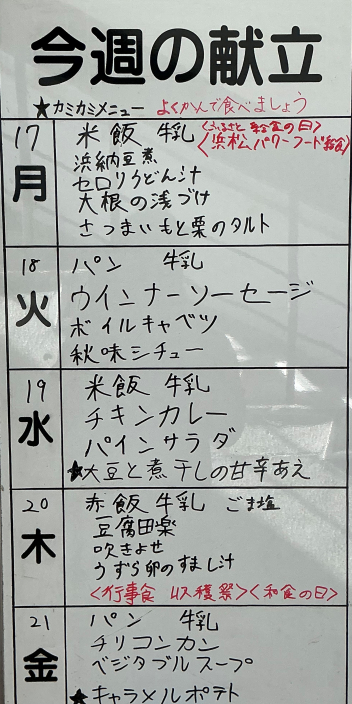 今週の献立
★カミカミメニュー よくかんで食べましょう
17 米飯 牛乳 <ふるさと給食の日>
月 浜納豆煮 <浜松パワーフード給食>
セロリうどん汁
大根の浅づけ
さつまいもと栗のタルト
18 パン 牛乳
火 ウインナーソーセージ
ボイルキャベツ
秋味シチュー
19 米飯 牛乳
水 チキンカレー
パインサラダ
★大豆と煮干しの甘辛あえ
20 赤飯 牛乳 ごま塩
木 豆腐田楽
吹きよせ
うずら卵のすまし汁
<行事食 収穫祭><和食の日>
21 パン 牛乳
金 チリコンカン
ベジタブルスープ
★キャラメルポテト